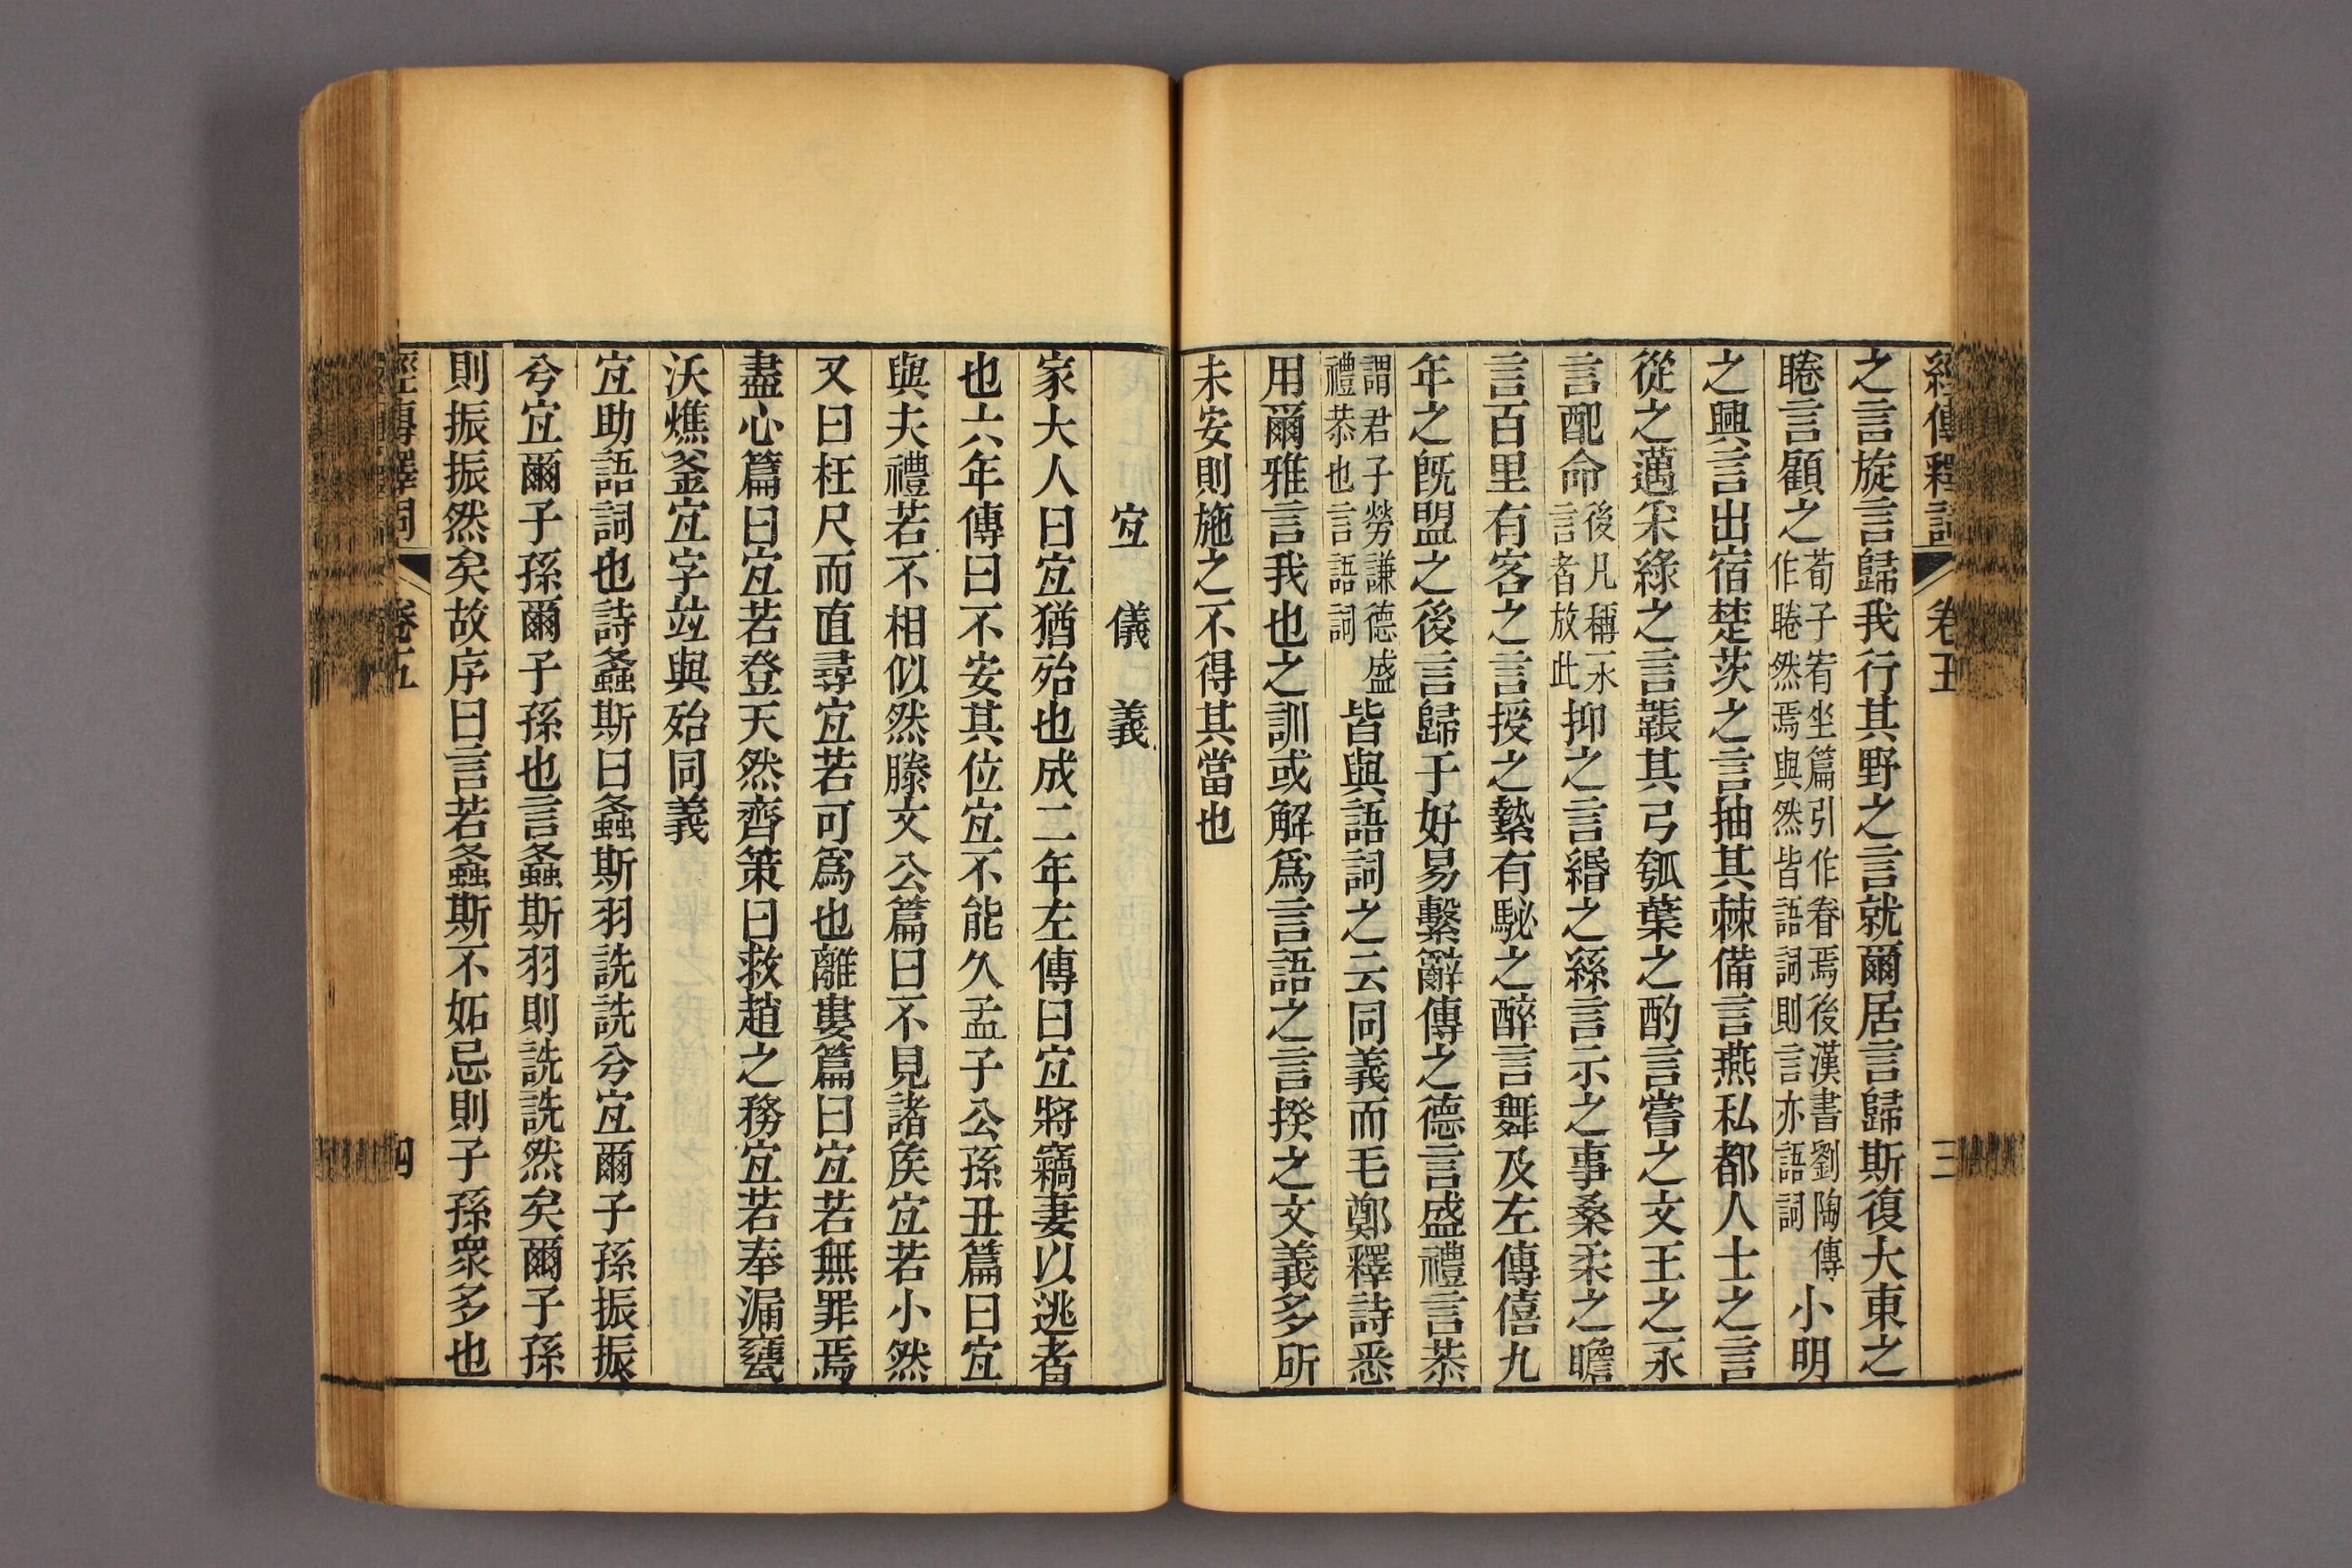 經傳釋詞 卷五 三
之言旋言歸我行其野之言就爾居言歸斯復大東之
睠言顧之荀子宥坐篇引作眷焉後漢書劉陶傳作睠然焉與然皆語詞則言亦語詞小明
之興言出宿楚茨之言抽其棘備言燕私都人士之言
從之邁采綠之言韔其弓瓠葉之酌言嘗之文王之永
言配命後凡稱永言者放此抑之言緡之絲言示之事桑柔之瞻
言百里有客之言授之縶有駜之醉言舞及左傳僖九
年之旣盟之後言歸于好易繫辭傳之德言盛禮言恭
謂君子勞謙德盛禮恭也言語詞皆與語詞之云同義而毛鄭釋詩悉
用爾雅言我也之訓或解爲言語之言揆之文義多所
未安則施之不得其當也
宐 儀 義
家大人曰宐猶殆也成二年左傳曰宐將竊妻以逃者
也六年傳曰不安其位宐不能久孟子公孫丑篇曰宐
與夫禮若不相似然滕文公篇曰不見諸矦宐若小然
又曰枉尺而直尋宐若可爲也離婁篇曰宐若無罪焉
盡心篇曰宐若登天然齊策曰救趙之務宐若奉漏甕
沃燋釜宐字竝與殆同義
宐助語詞也詩螽斯曰螽斯羽詵詵兮宐爾子孫振振
兮宐爾子孫爾子孫也言螽斯羽則詵詵然矣爾子孫
則振振然矣故序曰言若螽斯不妬忌則子孫衆多也
經傳釋詞 卷五 四